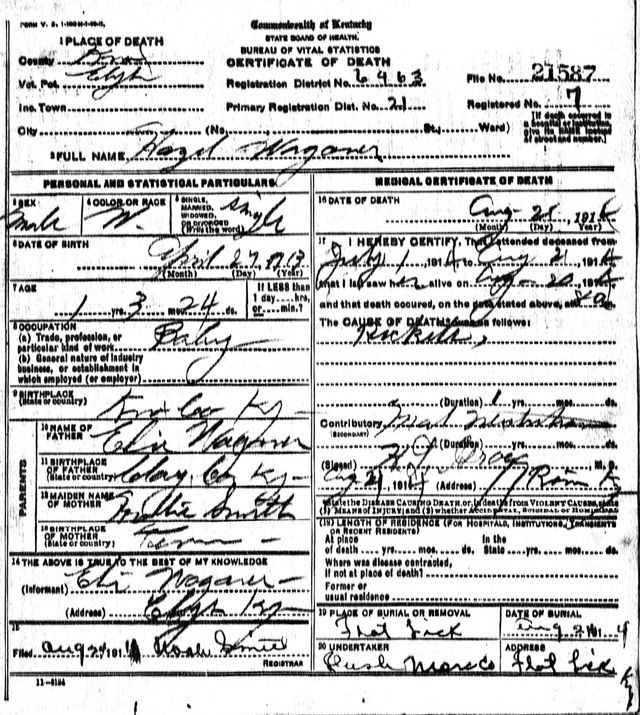 FORM V. S. 1-
Commonwealth of Kentucky
STATE BOARD OF HEALTH.
BUREAU OF VITAL STATISTICS
CERTIFICATE OF DEATH
1 PLACE OF DEATH
County Knox
Vot. Pct.
Inc. Town
City (No. St.; Ward)
Registration District No. 6463
Primary Registration Dist. No. 21
File No. 21587
Registered No. 7
[If death occurred in a hospital or institution, give its NAME instead of street and number.]
2 FULL NAME Hazel Waganer
PERSONAL AND STATISTICAL PARTICULARS
3 SEX Male
4 COLOR OR RACE W.
5 SINGLE, MARRIED, WIDOWED, OR DIVORCED (Write the word) Single
6 DATE OF BIRTH April 27, 1913
(Month) (Day) (Year)
7 AGE 1 yrs. 3 mos. 24 ds.
If LESS than 1 day....hrs. or....min.?
8 OCCUPATION
(a) Trade, profession, or particular kind of work Baby
(b) General nature of industry business, or establishment in which employed (or employer)
9 BIRTHPLACE (State or country) Knox Co Ky
PARENTS
10 NAME OF FATHER Eli Waganer
11 BIRTHPLACE OF FATHER (State or country) Clay Co Ky
12 MAIDEN NAME OF MOTHER Smith
13 BIRTHPLACE OF MOTHER (State or country) Tenn
14 THE ABOVE IS TRUE TO THE BEST OF MY KNOWLEDGE
(Informant) Eli Waganer
(Address) Ky
15
Filed Aug 24 191 Noah Smith
REGISTRAR
11-5184
MEDICAL CERTIFICATE OF DEATH
16 DATE OF DEATH Aug 21 1914
(Month) (Day) (Year)
17 I HEREBY CERTIFY, That I attended deceased from
July 1 1914 to Aug 21 1914
that I last saw her alive on Aug 20 1914
and that death occured, on the date stated above, at
The CAUSE OF DEATH was as follows:
Rickets,
(Duration) 1 yrs. mos. ds.
Contributory
(SECONDARY)
(Duration) yrs. mos. ds.
(Signed) M. D.
Aug 21 1914 (Address) Ky
State the DISEASE CAUSING DEATH, or, in deaths from VIOLENT CAUSES, state (1) MEANS OF INJURY; and (2) whether ACCIDENTAL, SUICIDAL OR HOMICIDAL
18 LENGTH OF RESIDENCE (FOR HOSPITALS, INSTITUTIONS, TRANSIENTS OR RECENT RESIDENTS)
At place of death yrs. mos. ds. In the State yrs. mos. ds.
Where was disease contracted, if not at place of death?
Former or usual residence
19 PLACE OF BURIAL OR REMOVAL Flat Lick
DATE OF BURIAL Aug 21 1914
20 UNDERTAKER
ADDRESS Flat Lick Ky